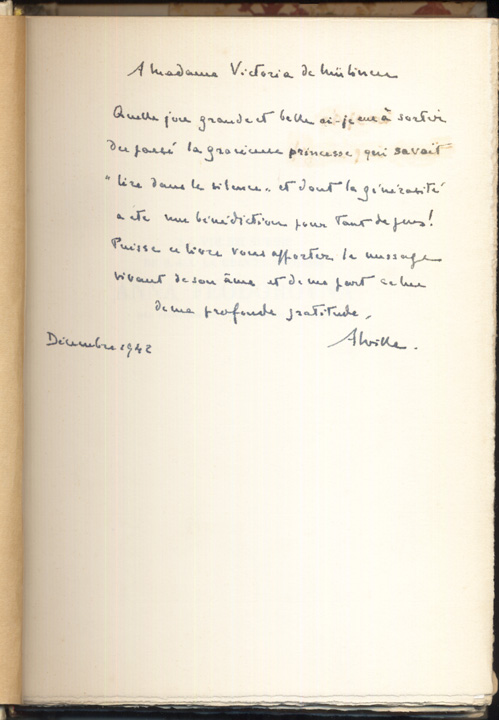 A Madame Victoria de Mülinen
Quelle joie grande et belle ai-je eue à sortir
du passé la gracieuse princesse, qui savait
"lire dans le silence", et dont la générosité
a été une bénédiction pour tant de gens!
Puisse ce livre vous apporter le message
vivant de son âme et de ma part celui
de ma profonde gratitude.
Décembre 1942 Alville.